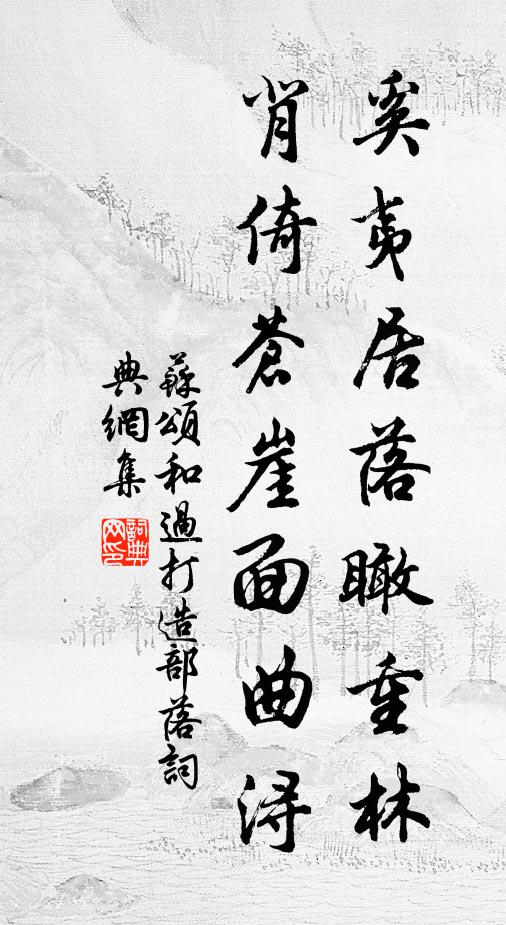 奚夷居落瞰重林
背倚蒼崖面曲潯
蘇頌和過打造部落詞
典網集
詞典網印